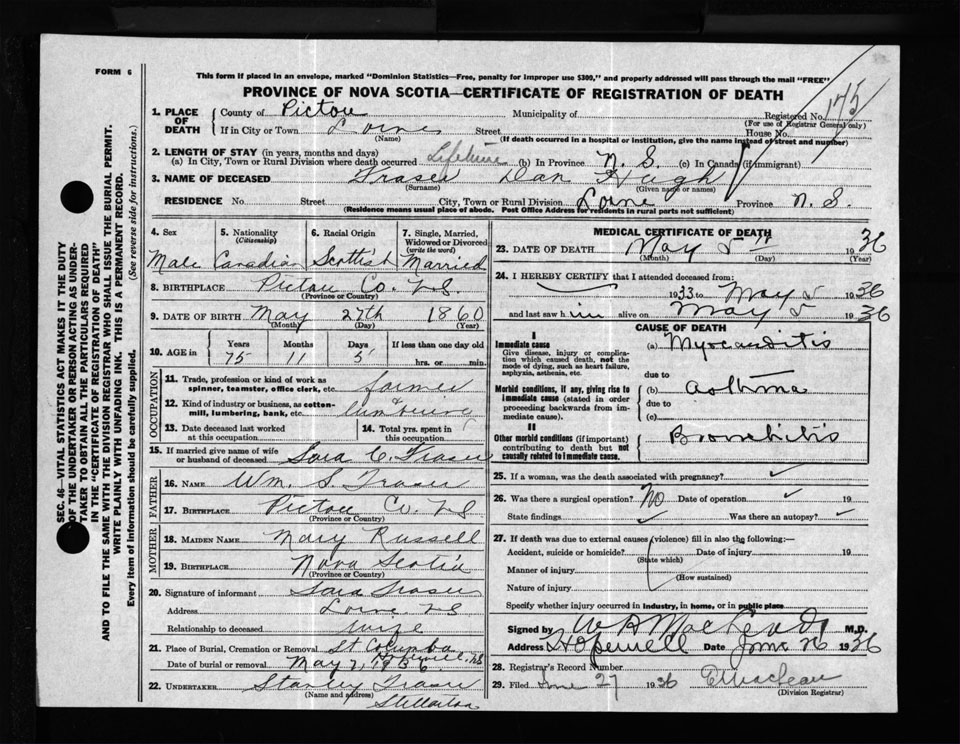 FORM 6
This form if placed in an envelope, marked "Dominion Statistics—Free, penalty for improper use $300," and properly addressed will pass through the mail "FREE"
PROVINCE OF NOVA SCOTIA—CERTIFICATE OF REGISTRATION OF DEATH
175
1. PLACE OF DEATH
County of Pictou Municipality of Registered No.
(For use of Registrar General only)
If in City or Town Lorne Street House No.
(Name) (If death occurred in a hospital or institution, give the name instead of street and number)
2. LENGTH OF STAY (in years, months and days)
(a) In City, Town or Rural Division where death occurred Lifetime (b) In Province N. S. (c) In Canada (if immigrant)
3. NAME OF DECEASED Fraser Dan Hugh
(Surname) (Given name or names)
RESIDENCE No. Street City, Town or Rural Division Lorne Province N. S.
(Residence means usual place of abode. Post Office Address for residents in rural parts not sufficient)
4. Sex
Male
5. Nationality
(Citizenship)
Canadian
6. Racial Origin
Scottish
7. Single, Married, Widowed or Divorced
(write the word)
Married
8. BIRTHPLACE Pictou Co. N.S.
(Province or Country)
9. DATE OF BIRTH May 27th 1860
(Month) (Day) (Year)
10. AGE in Years Months Days If less than one day old
75 11 5 hrs. or min.
OCCUPATION
11. Trade, profession or kind of work as spinner, teamster, office clerk, etc. farmer
12. Kind of industry or business, as cotton-mill, lumbering, bank, etc. lumbering
13. Date deceased last worked at this occupation
14. Total yrs. spent in this occupation
15. If married give name of wife or husband of deceased Sara C. Fraser
FATHER
16. NAME Wm. S. Fraser
17. BIRTHPLACE Pictou Co. N.S.
(Province or Country)
MOTHER
18. MAIDEN NAME Mary Russell
19. BIRTHPLACE Nova Scotia
(Province or Country)
20. Signature of informant Sara Fraser
Address Lorne N.S.
Relationship to deceased wife
21. Place of Burial, Cremation or Removal St Columba
Hopewell, N.S.
Date of burial or removal May 7, 1936
22. UNDERTAKER Stanley Fraser
(Name and address)
Stellarton
MEDICAL CERTIFICATE OF DEATH
23. DATE OF DEATH May 5th 1936
(Month) (Day) (Year)
24. I HEREBY CERTIFY that I attended deceased from:
1933 to May 5 1936
and last saw him alive on May 5 1936
CAUSE OF DEATH
I
Immediate cause
Give disease, injury or complication which caused death, not the mode of dying, such as heart failure, asphyxia, asthenia, etc.
(a) Myocarditis
due to
Morbid conditions, if any, giving rise to immediate cause (stated in order proceeding backwards from immediate cause).
(b) Asthma
due to
(c)
II
Other morbid conditions (if important) contributing to death but not causally related to immediate cause.
Bronchitis
25. If a woman, was the death associated with pregnancy? ✓
26. Was there a surgical operation? No Date of operation ✓ 19
State findings ✓ Was there an autopsy? ✓
27. If death was due to external causes (violence) fill in also the following:—
Accident, suicide or homicide? Date of injury 19
(State which)
Manner of injury
(How sustained)
Nature of injury
Specify whether injury occurred in industry, in home, or in public place
Signed by M.D.
Address Hopewell Date June 26 1936
28. Registrar's Record Number
29. Filed June 27 1936 E MacLean
(Division Registrar)
SEC. 46—VITAL STATISTICS ACT MAKES IT THE DUTY
OF THE UNDERTAKER OR PERSON ACTING AS UNDERTAKER TO OBTAIN ALL THE PARTICULARS REQUIRED
IN THE "CERTIFICATE OF REGISTRATION OF DEATH"
AND TO FILE THE SAME WITH THE DIVISION REGISTRAR WHO SHALL ISSUE THE BURIAL PERMIT.
WRITE PLAINLY WITH UNFADING INK. THIS IS A PERMANENT RECORD.
Every item of information should be carefully supplied. (See reverse side for instructions.)